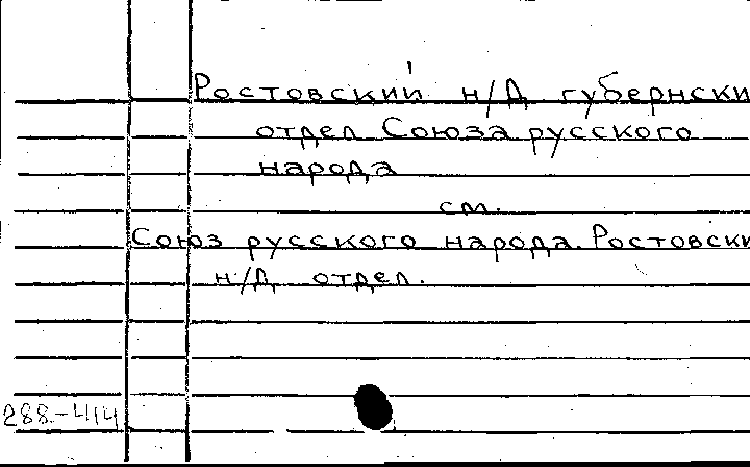 Ростовский н/Д губернски
отдел Союза русского
народа
см.
Союз русского народа. Ростовски
н/Д отдел.
288-414